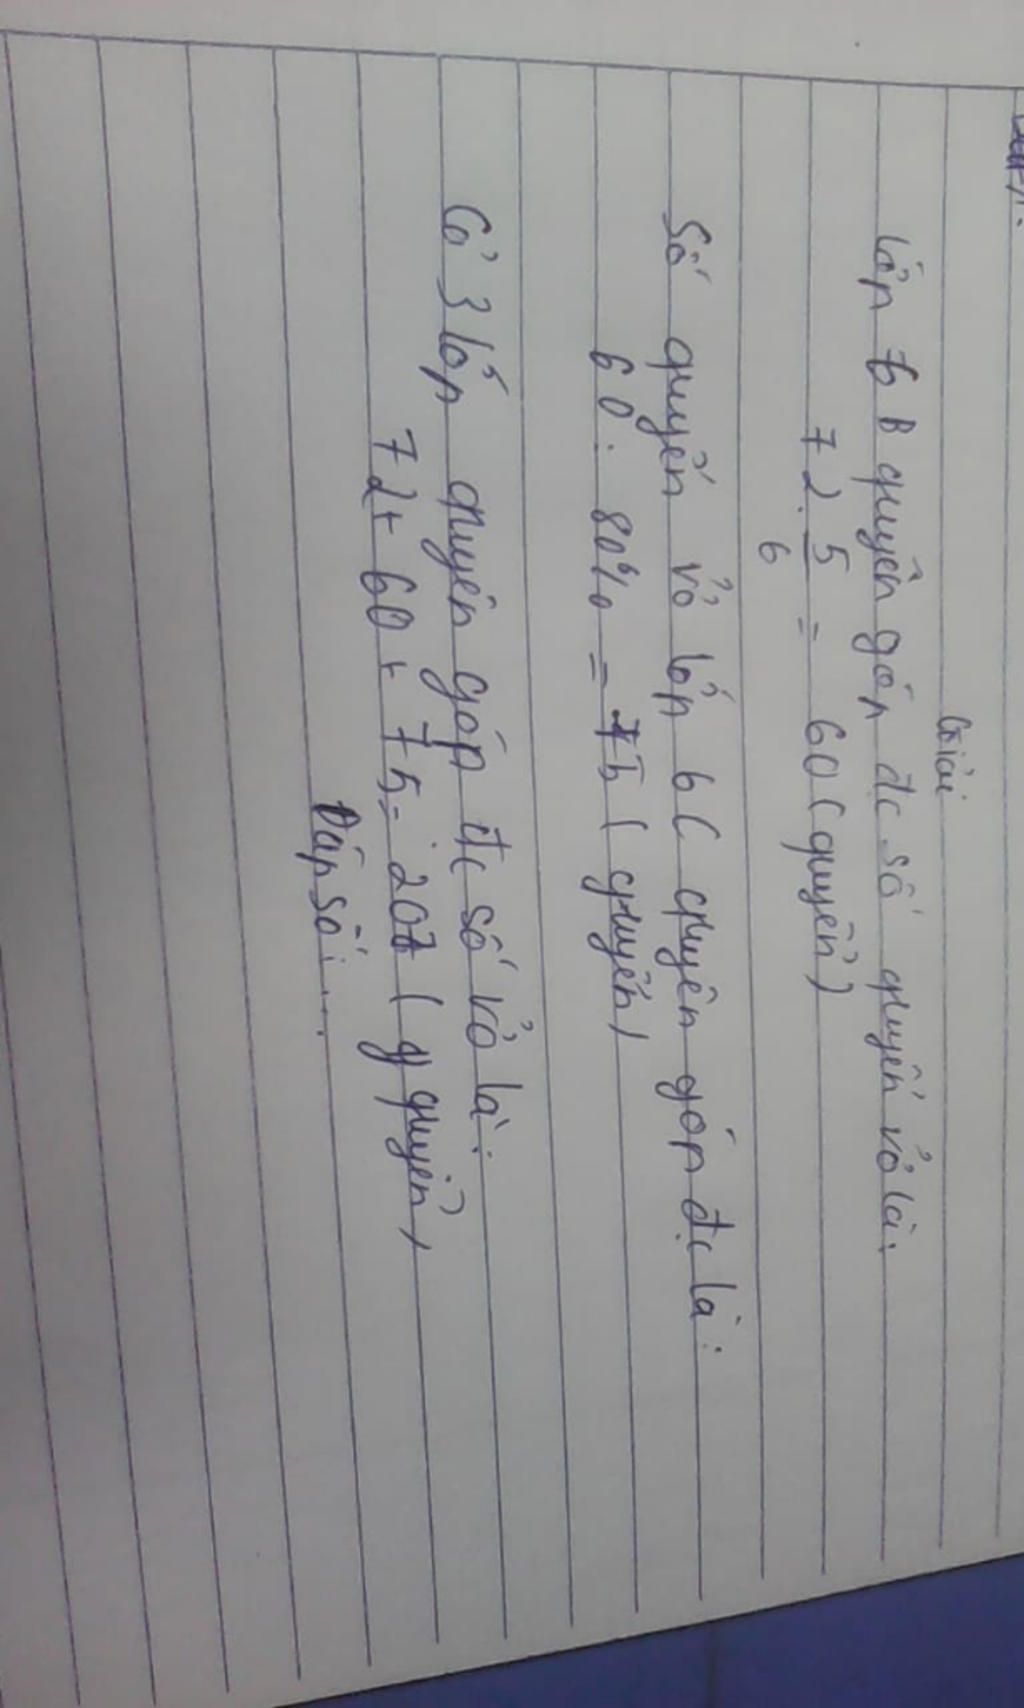 Giải
Lớp 6B quyên góp đc số quyển vở là:
72. 5/6 = 60 (quyển)
Số quyển vở lớp 6C quyên góp đc là:
60: 80% = 75 (quyển)
Cả 3 lớp quyên góp đc số vở là:
72+ 60+ 75= 207 (q quyển)
Đáp số:...